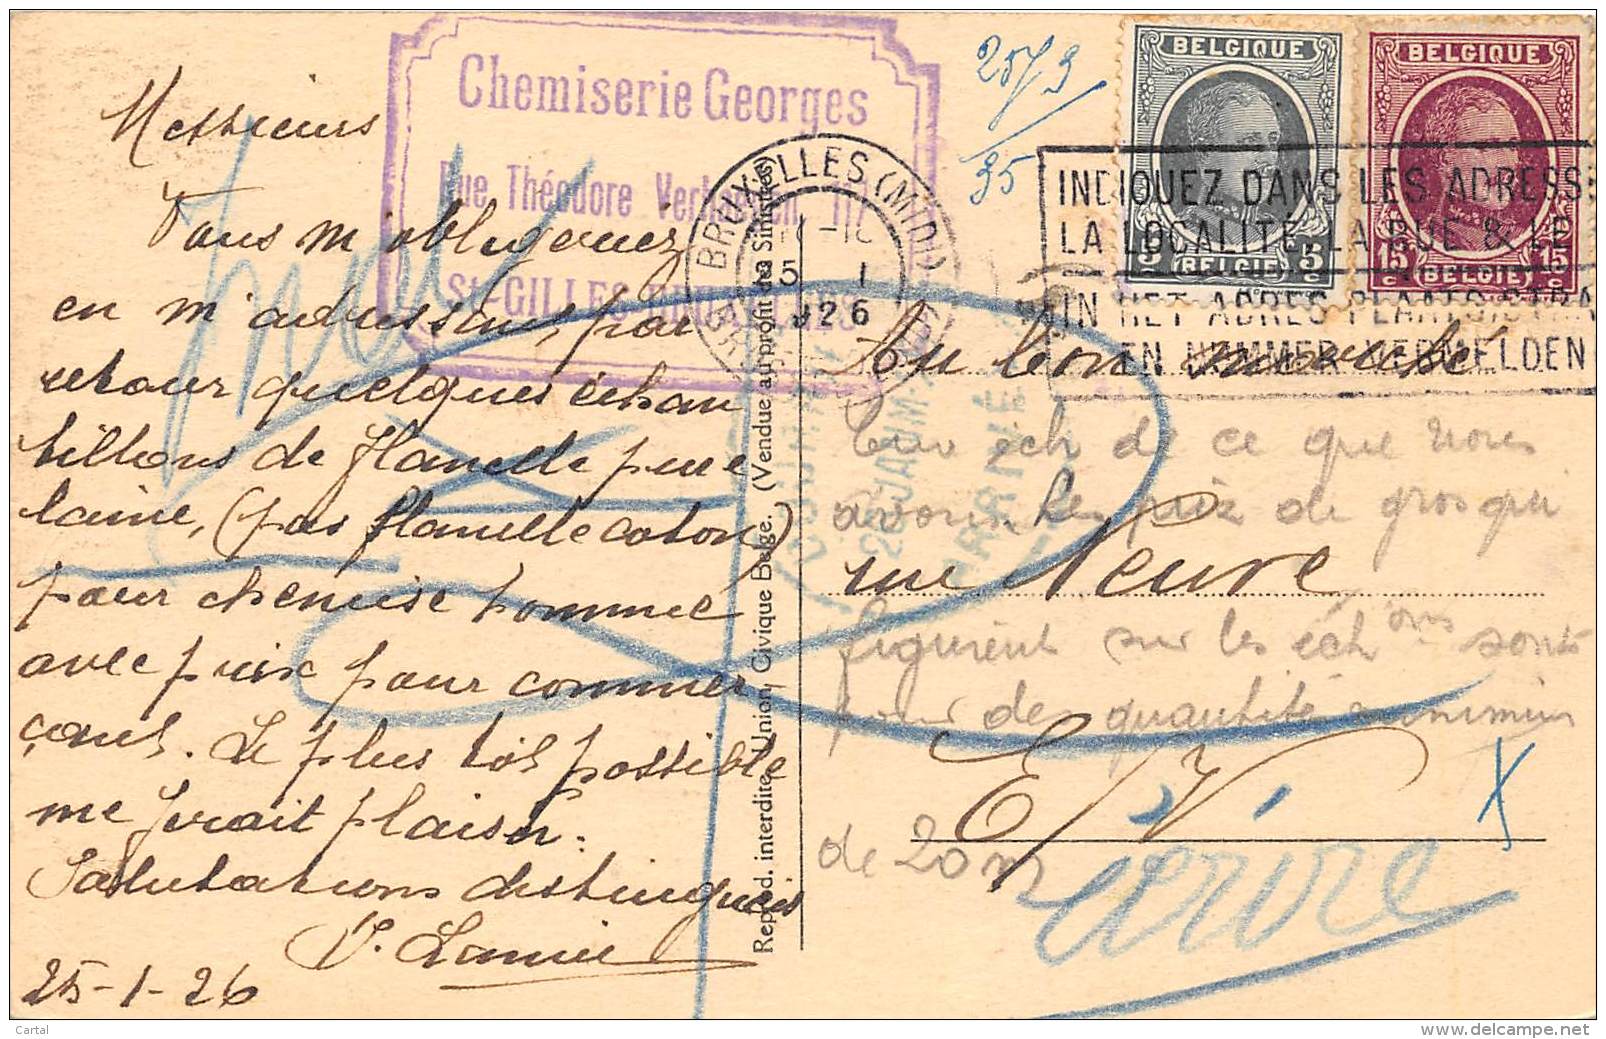 Messieurs
Vous m'obligeriez
en m'adressant par
retour quelques échan
tillons de flanelle pure
laine, (pas flanelle coton)
pour chemise homme
avec prix pour commer-
çants. Le plus tôt possible
me ferait plaisir.
Salutations distinguées
V.
25-1-26
Chemiserie Georges
Rue Théodore Verhaegen,
St-GILLES-BRUXELLES
2579
95
BELGIQUE
5 c 5 c
BELGIE
BELGIQUE
15 c 15 c
BELGIE
BRUXELLES (MIDI)
1926
INDIQUEZ DANS LES ADRESS
LA LOCALITÉ LA RUE & LE
IN HET ADRES PLAATS STRA
EN NUMMER VERMELDEN
Reprod. interdite. Union Civique Belge. (Vendue au profit des Sinistrés)
Au bon marché
rue Neuve
E/V.
éch de ce que nous
avons. Les prix de gros qui
figurent sur les échons sont
pour des quantités minimum
de 20 m
écrire
X
Cartal
www.delcampe.net